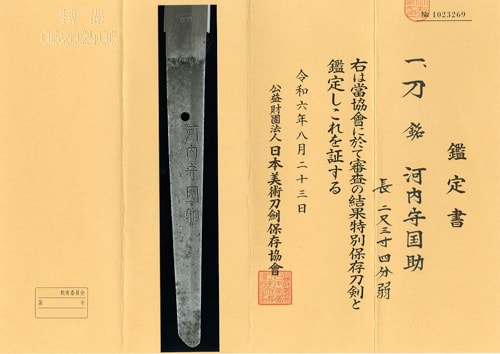 № 1023269
鑑定書
一、刀 銘 河内守国助
長 二尺三寸四分弱
右は當協會に於て審査の結果特別保存刀剣と
鑑定しこれを証する
令和六年八月二十三日
公益財團法人 日本美術刀劍保存協會
河内守国助
教育委員会
第 号